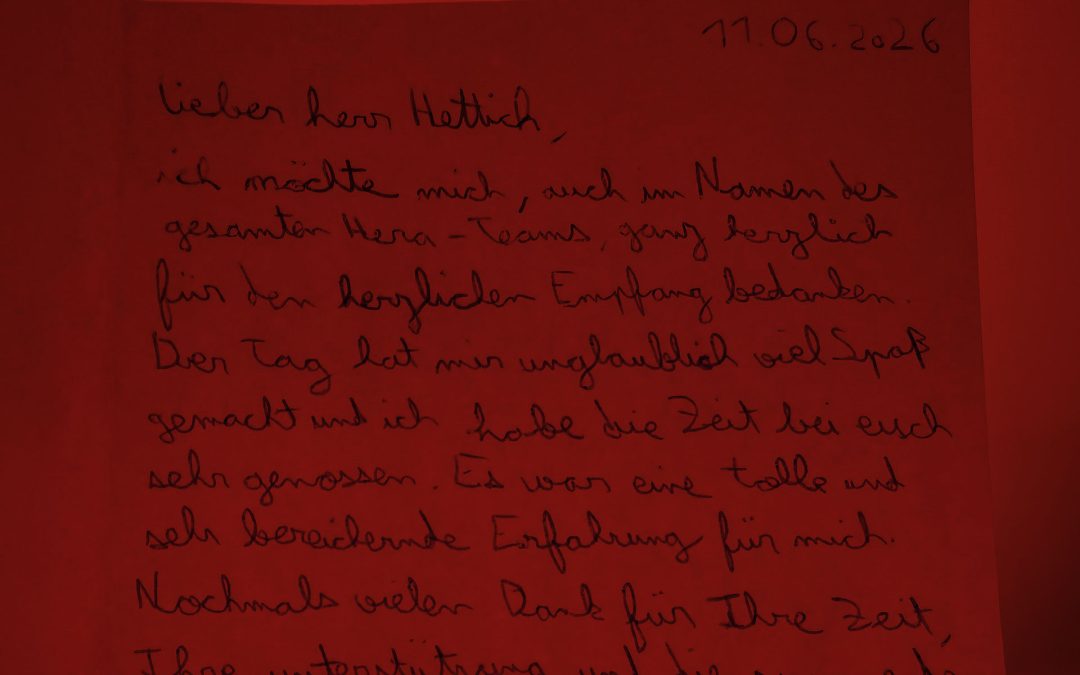 11.06.2026
Lieber Herr Hettich,
ich möchte mich, auch im Namen des
gesamten Hera-Teams, ganz herzlich
für den herzlichen Empfang bedanken.
Der Tag hat mir unglaublich viel Spaß
gemacht und ich habe die Zeit bei euch
sehr genossen. Es war eine tolle und
sehr bereichernde Erfahrung für mich.
Nochmals vielen Dank für Ihre Zeit,
Ihre Unterstützung und die